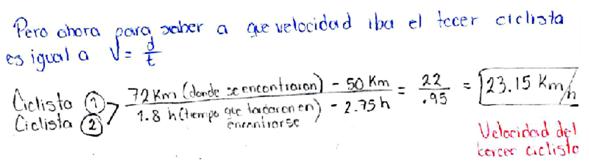 Pero ahora para saber a que velocidad iba el tecer ciclista
es igual a V = d/t
Ciclista ① 72 Km (donde se encontraron) - 50 Km = 22 = 23.15 Km/h
Ciclista ② 1.8 h (tiempo que tardaron en encontrarse) - 2.75 h .95
Velocidad del
tercer ciclista